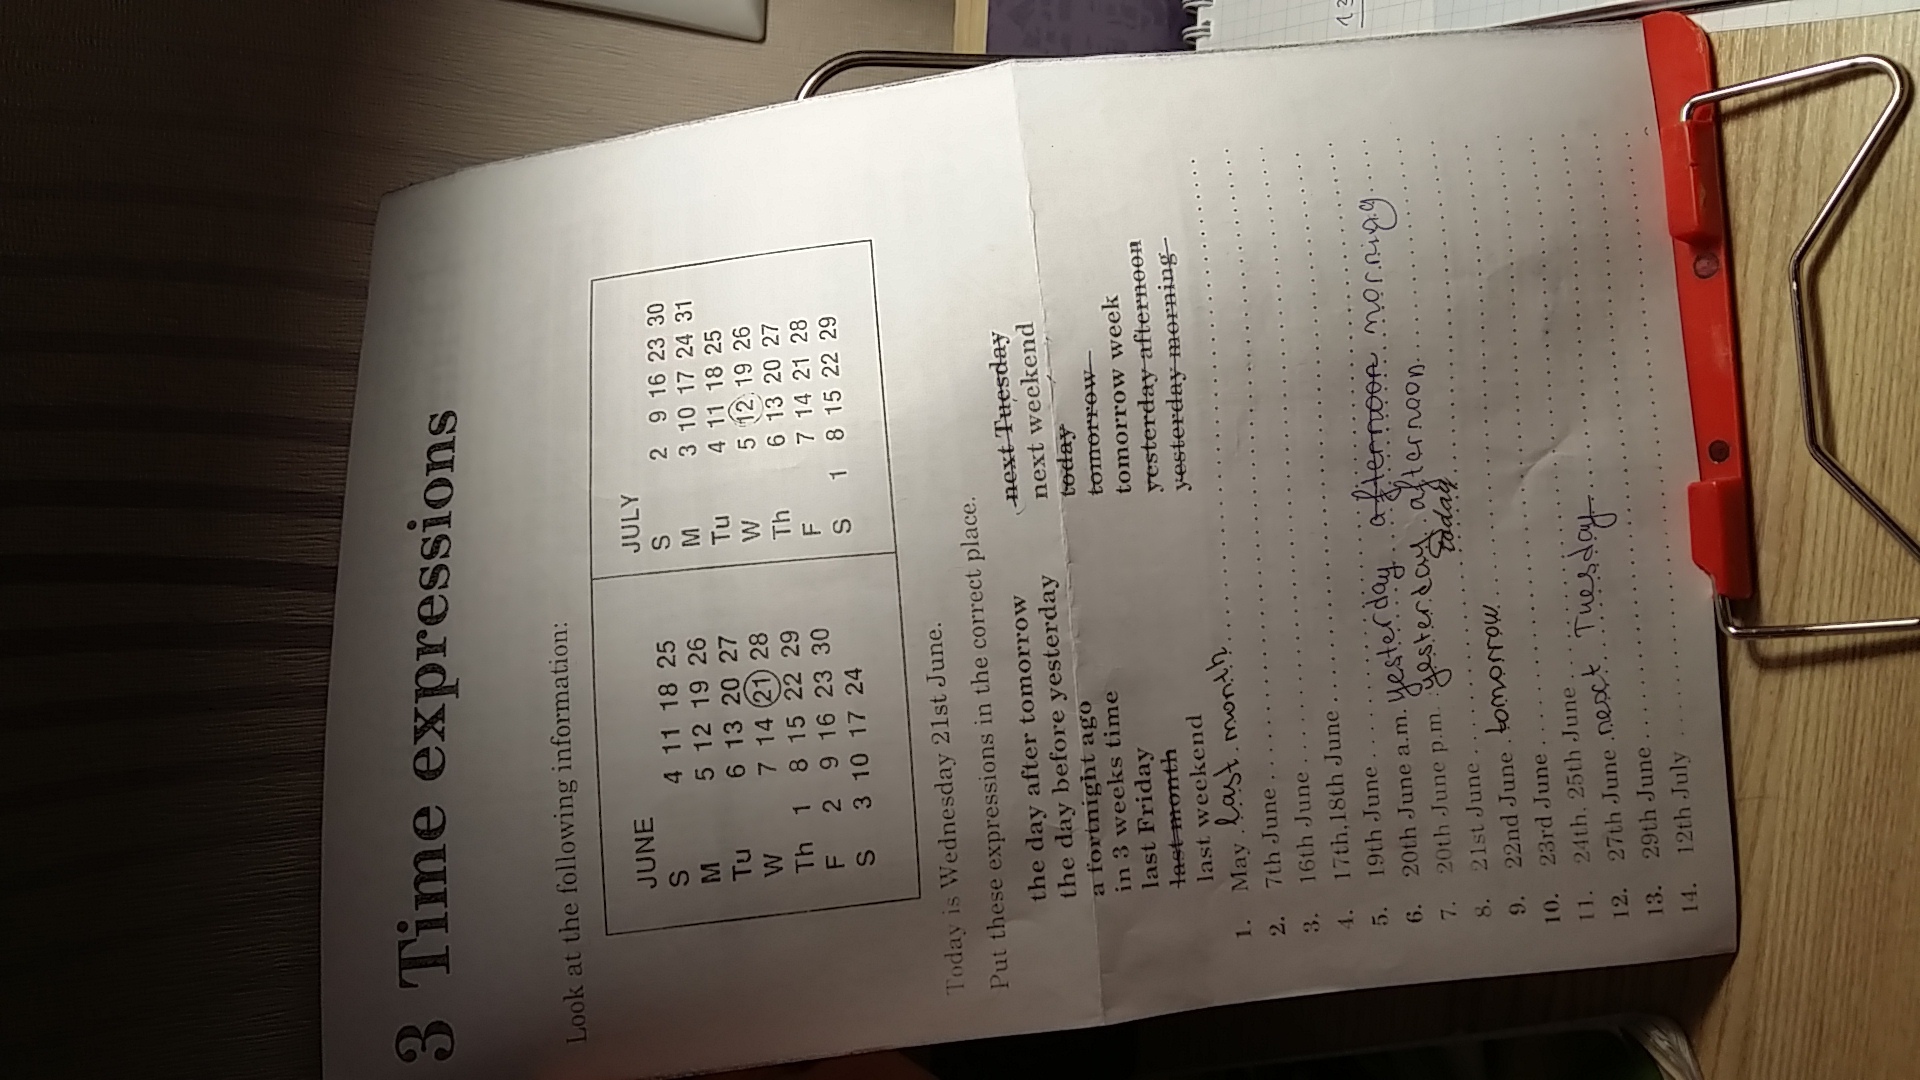 3 Time expressions
Look at the following information:
JUNE
S 4 11 18 25
M 5 12 19 26
Tu 6 13 20 27
W 7 14 21 28
Th 1 8 15 22 29
F 2 9 16 23 30
S 3 10 17 24
JULY
S 2 9 16 23 30
M 3 10 17 24 31
Tu 4 11 18 25
W 5 12 19 26
Th 6 13 20 27
F 7 14 21 28
S 1 8 15 22 29
Today is Wednesday 21st June.
Put these expressions in the correct place.
the day after tomorrow
the day before yesterday
a fortnight ago
in 3 weeks time
last Friday
last month
last weekend
next Tuesday
next weekend
today
tomorrow
tomorrow week
yesterday afternoon
yesterday morning
1. May last month
2. 7th June
3. 16th June
4. 17th, 18th June
5. 19th June
6. 20th June a.m. yesterday afternoon morning
7. 20th June p.m. yesterday afternoon
8. 21st June today
9. 22nd June tomorrow
10. 23rd June
11. 24th. 25th June
12. 27th June next Tuesday
13. 29th June
14. 12th July
13